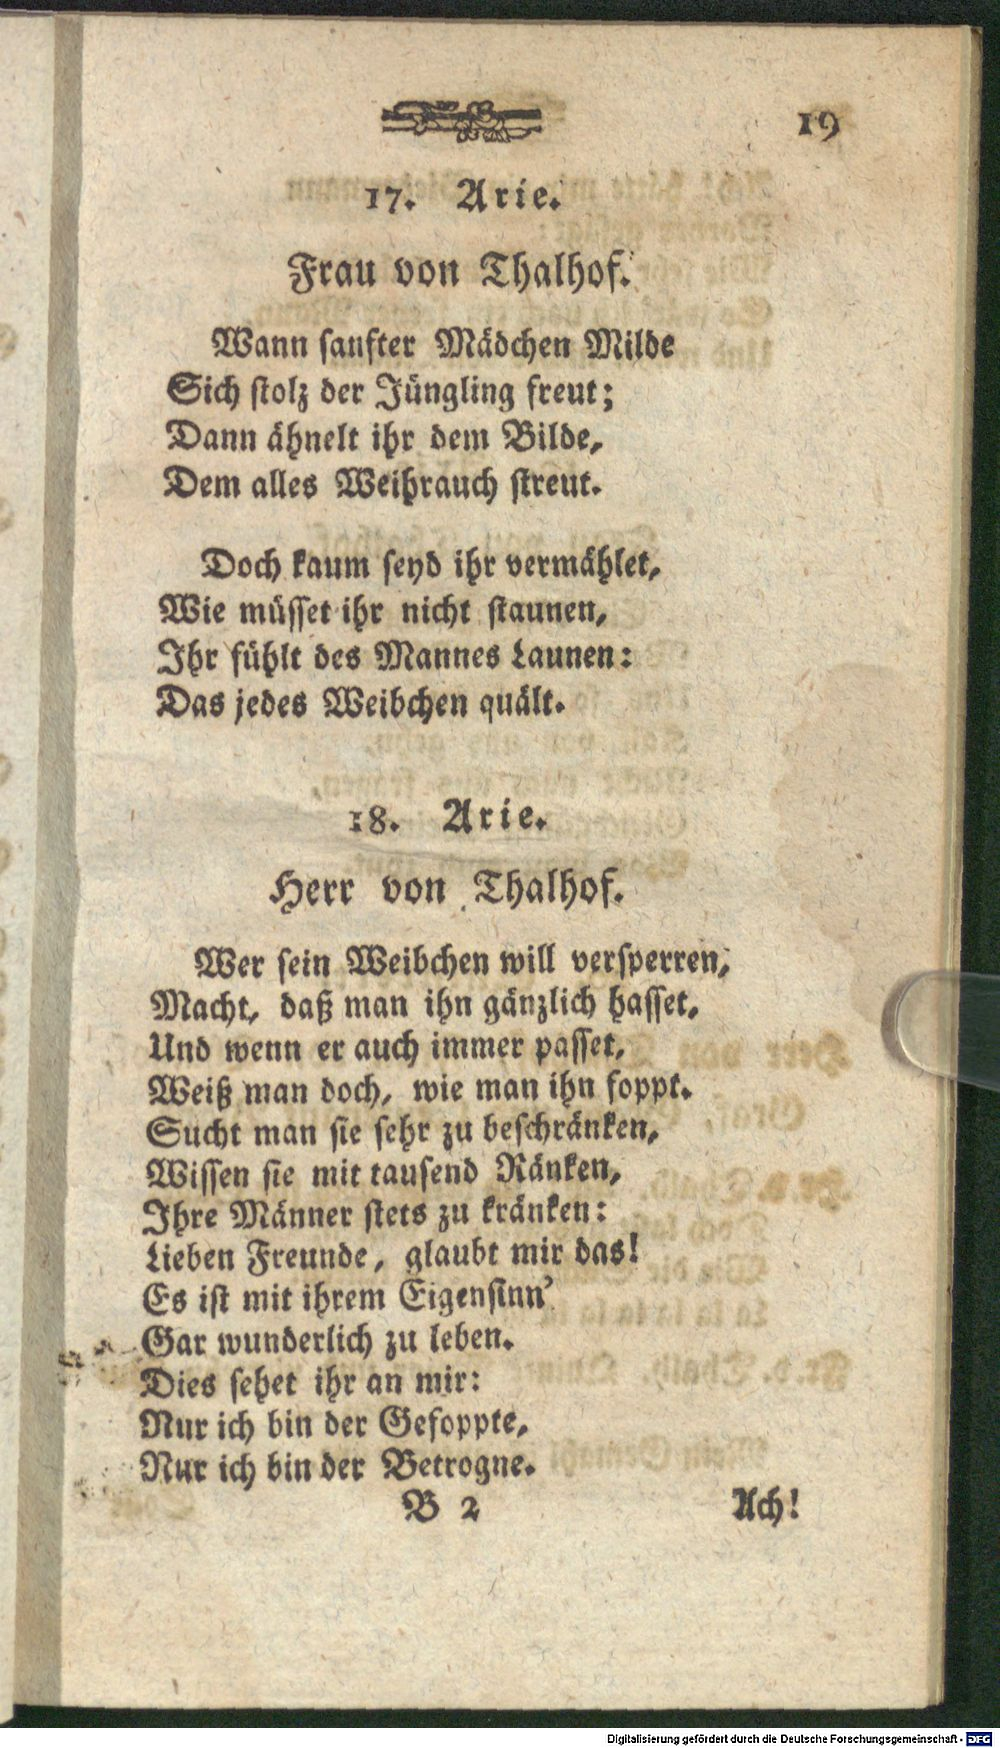 19
17. Arie.
Frau von Thalhof.
Wann sanfter Mädchen Milde
Sich stolz der Jüngling freut;
Dann ähnelt ihr dem Bilde,
Dem alles Weihrauch streut.
Doch kaum seyd ihr vermählet,
Wie müsset ihr nicht staunen,
Ihr fühlt des Mannes Launen:
Das jedes Weibchen quält.
18. Arie.
Herr von Thalhof.
Wer sein Weibchen will versperren,
Macht, daß man ihn gänzlich hasset,
Und wenn er auch immer passet,
Weiß man doch, wie man ihn foppt.
Sucht man sie sehr zu beschränken,
Wissen sie mit tausend Ränken,
Ihre Männer stets zu kränken:
Lieben Freunde, glaubt mir das!
Es ist mit ihrem Eigensinn'
Gar wunderlich zu leben.
Dies sehet ihr an mir:
Nur ich bin der Gefoppte,
Nur ich bin der Betrogne.
B 2 Ach!
Digitalisierung gefördert durch die Deutsche Forschungsgemeinschaft - DFG